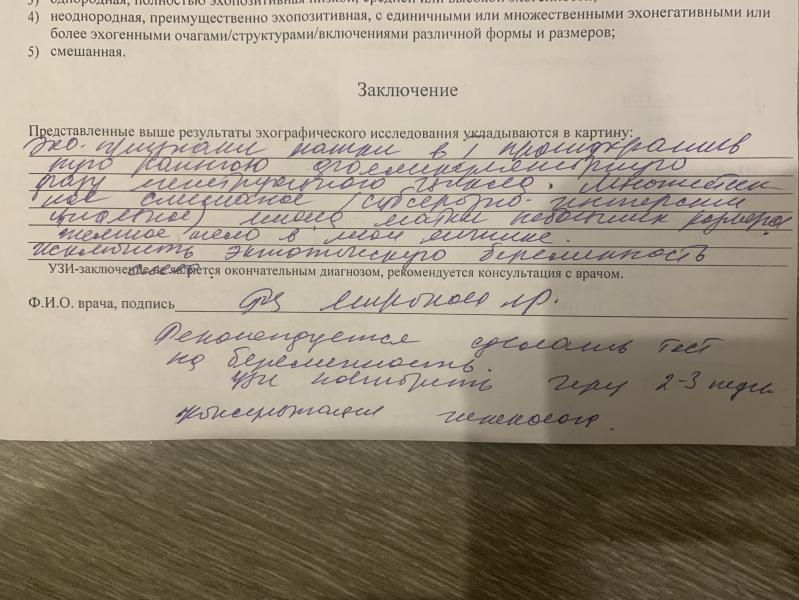 4) неоднородная, преимущественно эхопозитивная, с единичными или множественными эхонегативными или
более эхогенными очагами/структурами/включениями различной формы и размеров;
5) смешанная.
Заключение
Представленные выше результаты эхографического исследования укладываются в картину:
Эхо-признаки матки в
раннюю
фазу менструального цикла. Множествен
ное смешаное (субсерозно-интерсти
циальное) миома матки небольших размеров
желтое тело в левом яичнике.
исключить эктопическую беременность
УЗИ-заключение не является окончательным диагнозом, рекомендуется консультация с врачом.
Ф.И.О. врача, подпись
Рекомендуется сделать тест
на беременность.
узи повторить через 2-3 недели
консультация гинеколога.